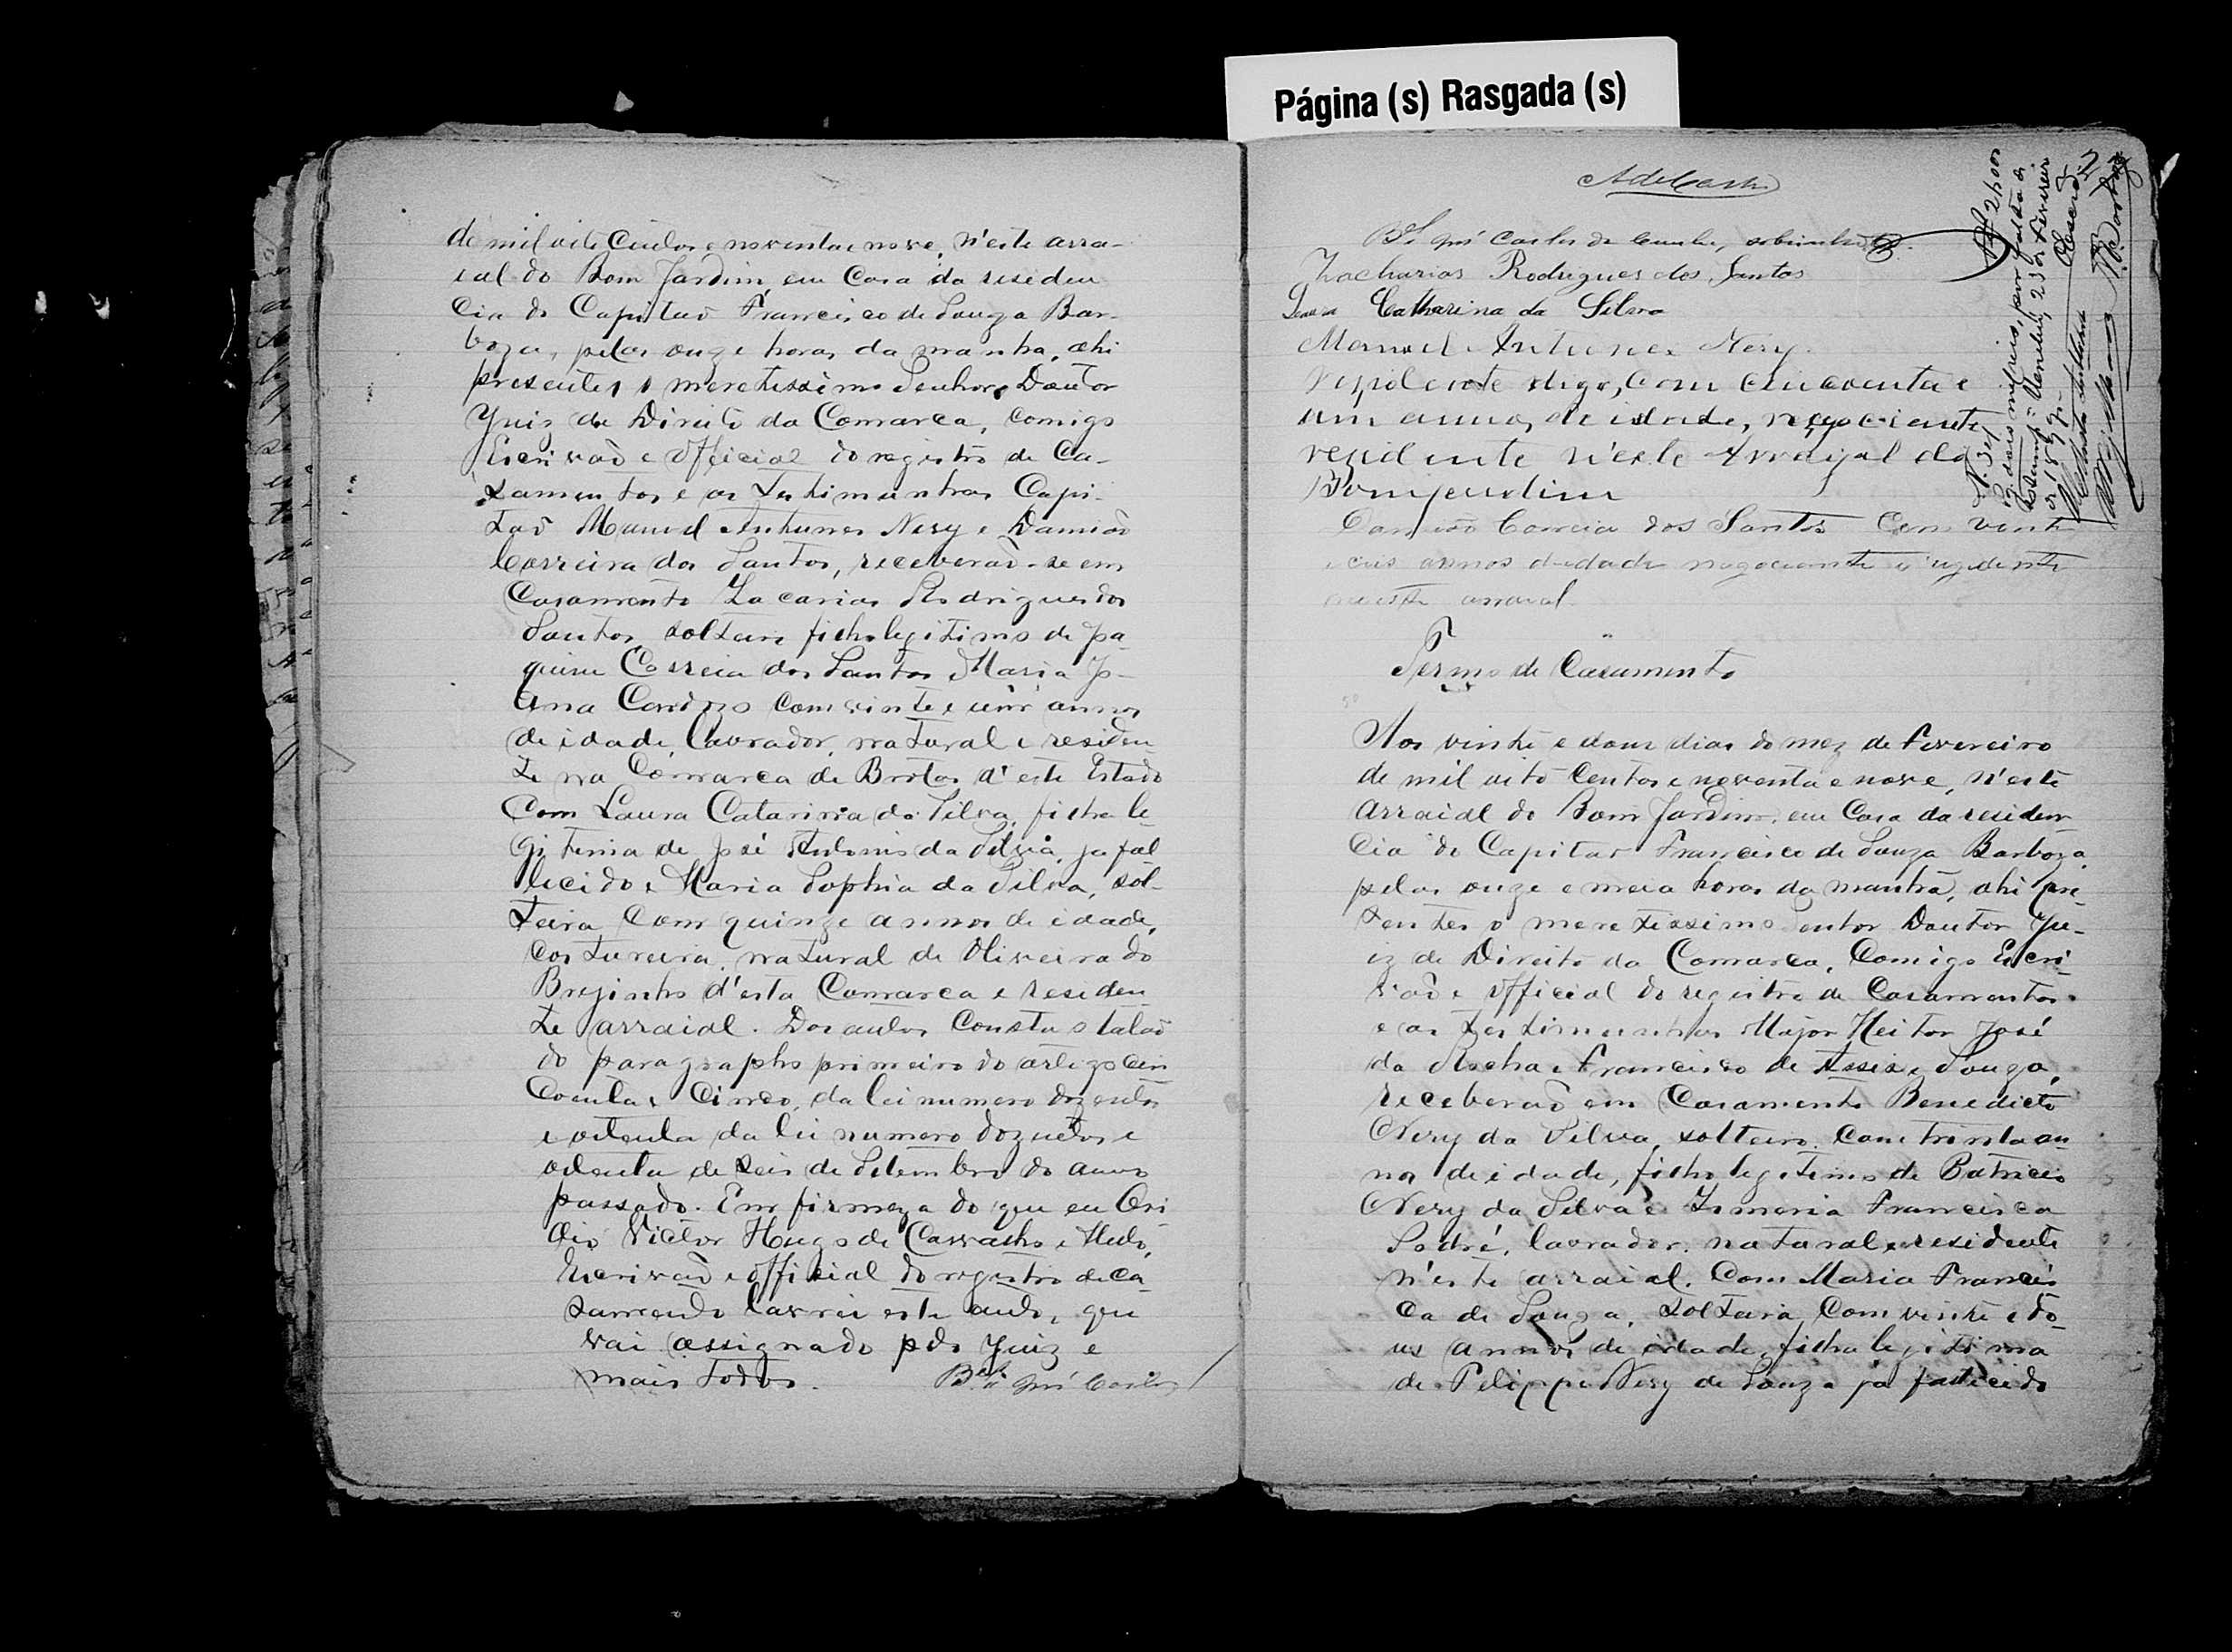 Página (s) Rasgada (s)
de mil oito Centos e noventa e nove, n'este arra-
ial do Bom Jardim, em Casa da residen
Cia do Capitaõ Francisco de Souza Bar-
boza, pelas onze horas da manha, ahi
presentes o meretissimo Senhor Doutor
Juis de Direito da Comarca, comigo
Escrivaõ e Official do registro de Ca-
samentos e as testimunhas Capi-
taõ Manuel Antunes Nery e Damiaõ
Correira dos Santos, receberaõ-se em
Casamento Zacarias Rodrigues dos
Santos, solteiro filho legitimo de Joa
quim Correia dos Santos e Maria Jo-
anna Cardozo com vinte e um annos
de idade, lavrador, natural e residen
te na Comarca de Brotas d'este Estado
Com Laura Catarina da Silva, filha le-
gitima de José Antonio da Silva, ja fal
lecido e Maria Sophia da Silva, sol-
teira com quinze annos de idade,
costureira, natural de Oliveira do
Brejinho d'esta Comarca e residen
te arraial. Dos autos Consta o talaõ
do paragrapho primeiro do artigo cin
Coenta e Cinco, da lei numero dozentos
e oitenta da lei numero dozentos e
oitenta de seis de Setembro do anno
passado. Em firmeza do que eu
Victor Hugo de Carvalho e Mello,
Escrivaõ e official do registro de ca
samento lavrei este auto, que
vai assignado pelo Juiz e
mais todos. Bel. José Carlos
Bel José Carlos da Cunha,
Zacharias Rodrigues dos Santos
Laura Catharina da Silva
Manoel Antunes Nery.
rezidente digo, com cincoenta e
um annos de idade, negociante
rezidente n'este Arraijal do
Bomjardim
Damião Correia dos Santos Com vinte
e seis annos d-edade negociante e rezidente
neste arraial
Termo de Casamento
Aos vinte e dous dias do mez de fevereiro
de mil oito Centos e noventa e nove, n'este
arraial do Bom Jardim, em Casa da residen
Cia do Capitaõ Francisco de Souza Barboza,
pelas onze e meia horas da manhã, ahi pre-
sentes o meretissimo Doutor Ju-
iz de Direito da Comarca, Comigo Escri-
vaõ e Official do registro de Casamentos
e as testimunhas Major Heitor José
da Rocha e Francisco de Assis e Souza,
receberaõ em Casamento Benedicto
Nery da Silva, solteiro, com trinta an
nos de idade, filho legitimo de Patricio
Nery da Silva e Francisca
Sodré, lavrador, natural e residente
n'este arraial, Com Maria Francis
ca de Souza, solteira, com vinte e do-
us annos de idade, filha legitima
de Felippe Nery de Souza já fallecido
Rs 2$000
Pg. dois mil reis, por falta de
Estamp.
de 1899